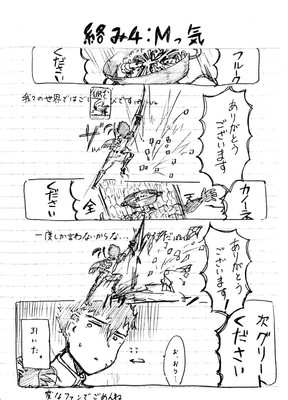 絡み4：Mっ気
フルーツ
ください
我々の世界ではご
人です
ありがとう
ございます
カイーネ
全
ください
一度しか言わないからな…
ありがとう
ございます！
次グリート
ください
お…おう…
引いた。
変なファンでごめんね